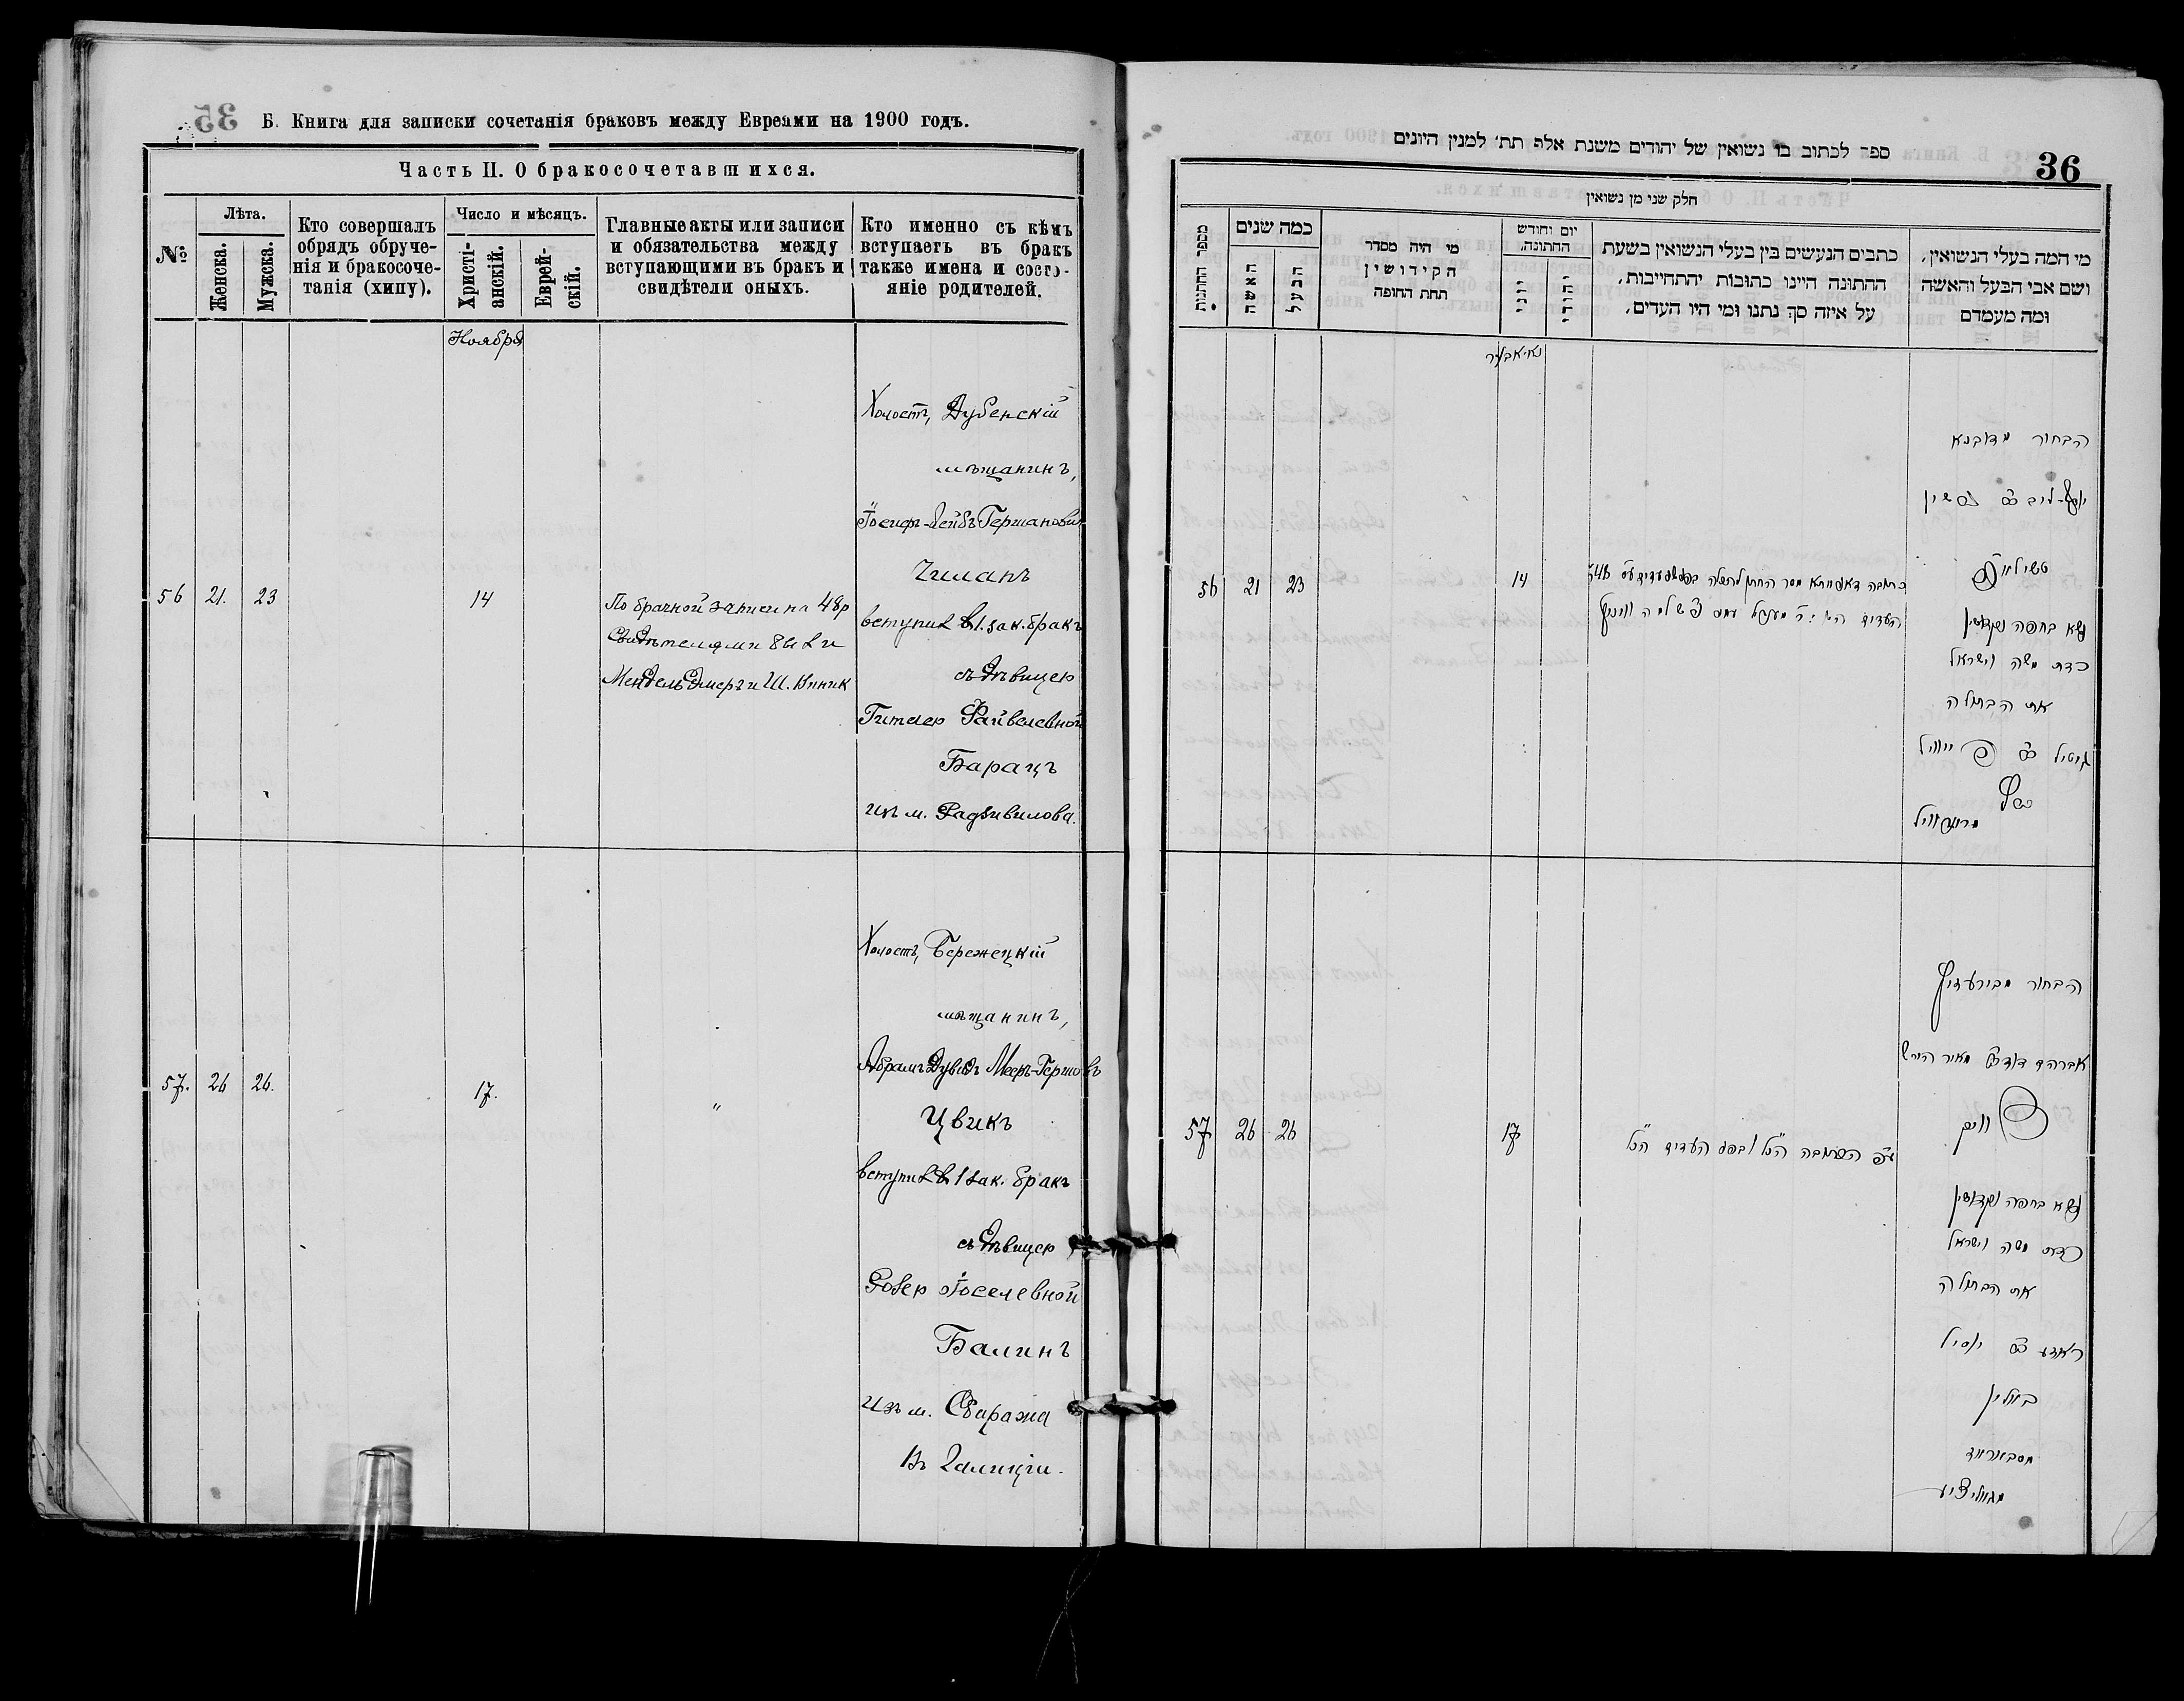 Б. Книга для записки сочетанія браковъ между Евреами на 1900 годъ.
Часть II. О бракосочетавшихся.
№
Лѣта.
Женска.
Мужска.
Кто совершалъ
обрядъ обруче-
нія и бракосоче-
танія (хипу).
Число и мѣсяцъ.
Христі-
анскій.
Еврей-
скій.
Главные акты или записи
и обязательства между
вступающими въ бракъ и
свидѣтели оныхъ.
Кто именно съ кѣмъ
вступаетъ въ бракъ
также имена и состо-
яніе родителей.
Ноября
56 21. 23 14
По брачной записи на 48 р
Свидѣтелями были
Мендель Эмеръ и Ш. Виник
Холостъ, Дубенскій
мѣщанинъ,
Іосифъ-Лейбъ Гершанович
Чиланъ
вступил в 1. зак. бракъ
съ дѣвицею
Гитлею Файвелевной
Барацъ
изъ м. Радзивилова.
57. 26 26. 17. "
Холостъ, Бережецкій
мѣщанинъ,
Абрамъ Дувидъ Меер-Гершовъ
Цвикъ
вступил в 1 зак. бракъ
съ дѣвицею
Розею Іоселевной
Балинъ
изъ м. Збаража
въ Галиціи.
36
ספר לכתוב בו נשואין של יהודים משנת אלף תת׳ למנין היונים
חלק שני מן נשואין
מספר החתנות
כמה שנים
האשה
הבעל
מי היה מסדר
הקידושין
תחת החופה
יום וחודש
החתונה,
יוני
יהודי
כתבים הנעשים בין בעלי הנשואין בשעת
החתונה היינו כתובות יהתחייבות,
על איזה סך נתנו ומי היו העדים,
מי המה בעלי הנשואין,
ושם אבי הבעל והאשה
ומה מעמדם
נאיאבער
56 21 23 14
הבחור מדובנא
נשא בחופה וקדושין
כדת משה וישראל
את הבתולה
57 26 26 17
ע״פ הכתובה הנ״ל ובפני העדים הנ״ל
הבחור
אברהם דוד מאיר הירש
נשא בחופה וקדושין
כדת משה וישראל
את הבתולה
ראזע יוסיל
באלין